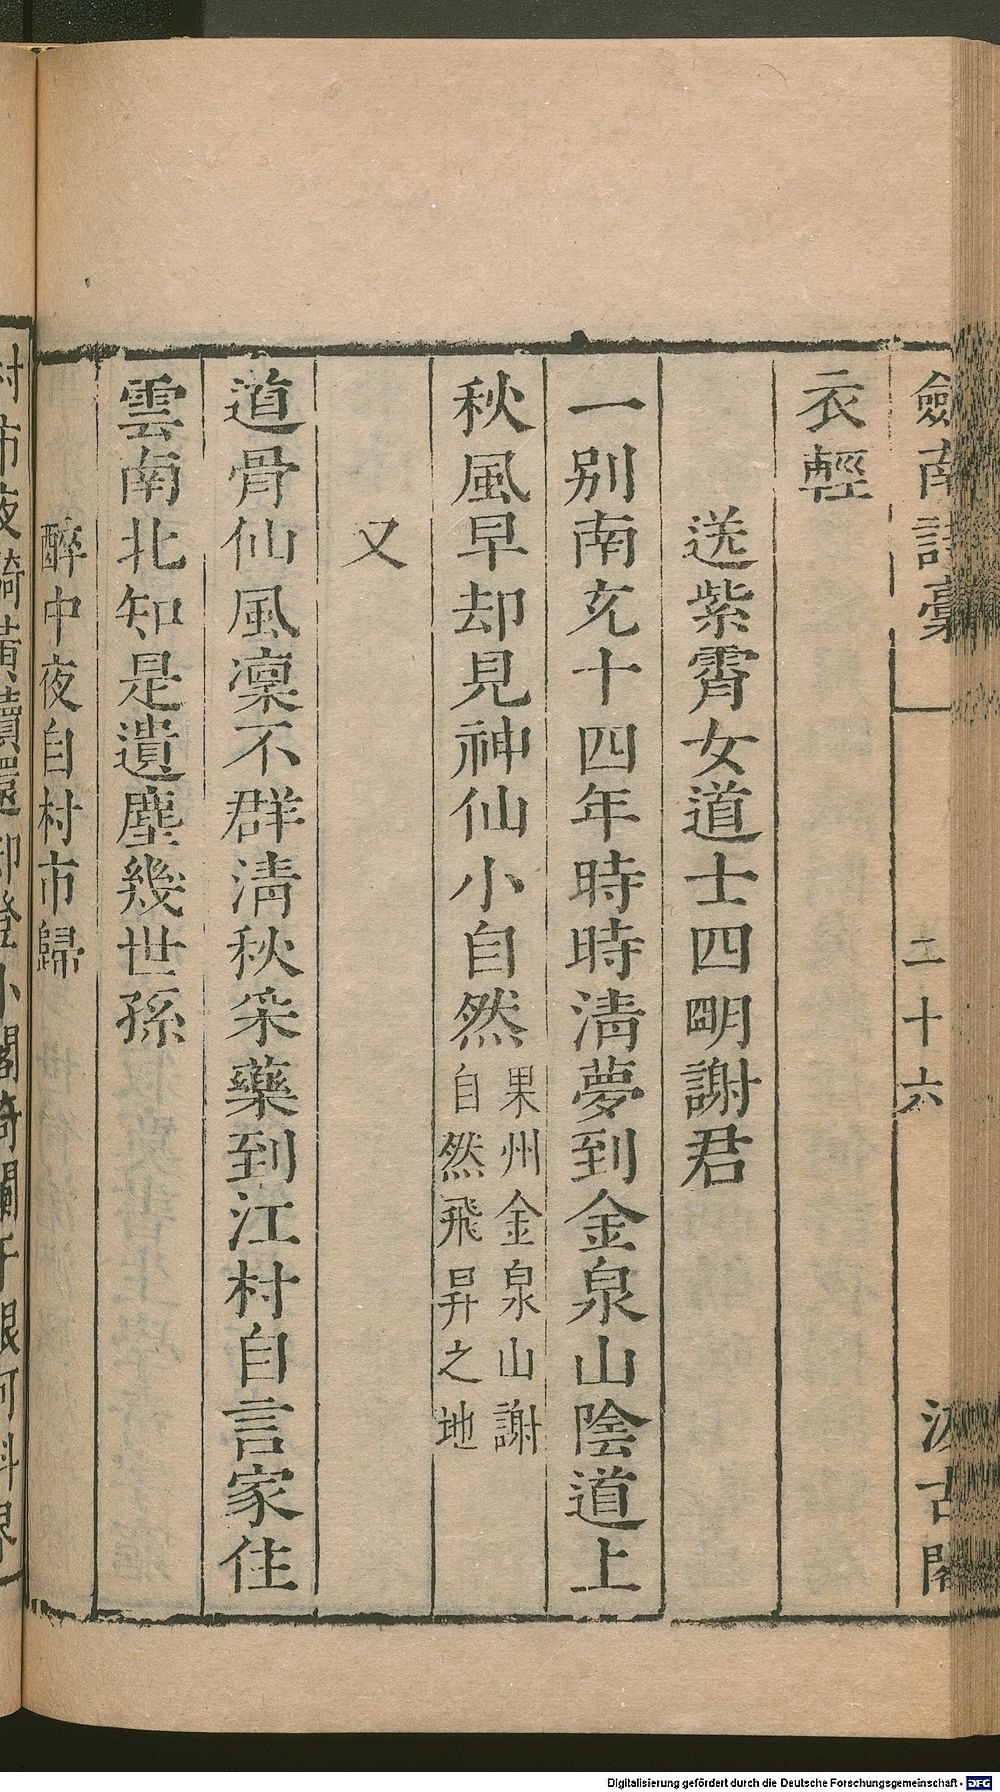 劒南詩藁
二十六
汲古閣
衣輕
送紫霄女道士四明謝君
一别南充十四年時時淸夢到金泉山陰道上
秋風早却見神仙小自然果州金泉山謝
自然飛昇之地
又
道骨仙風凜不群淸秋采藥到江村自言家住
雲南北知是遺塵幾世孫
醉中夜自村市歸
村市夜騎黃犢還却登小閣倚闌干銀河斜界
Digitalisierung gefördert durch die Deutsche Forschungsgemeinschaft - DFG